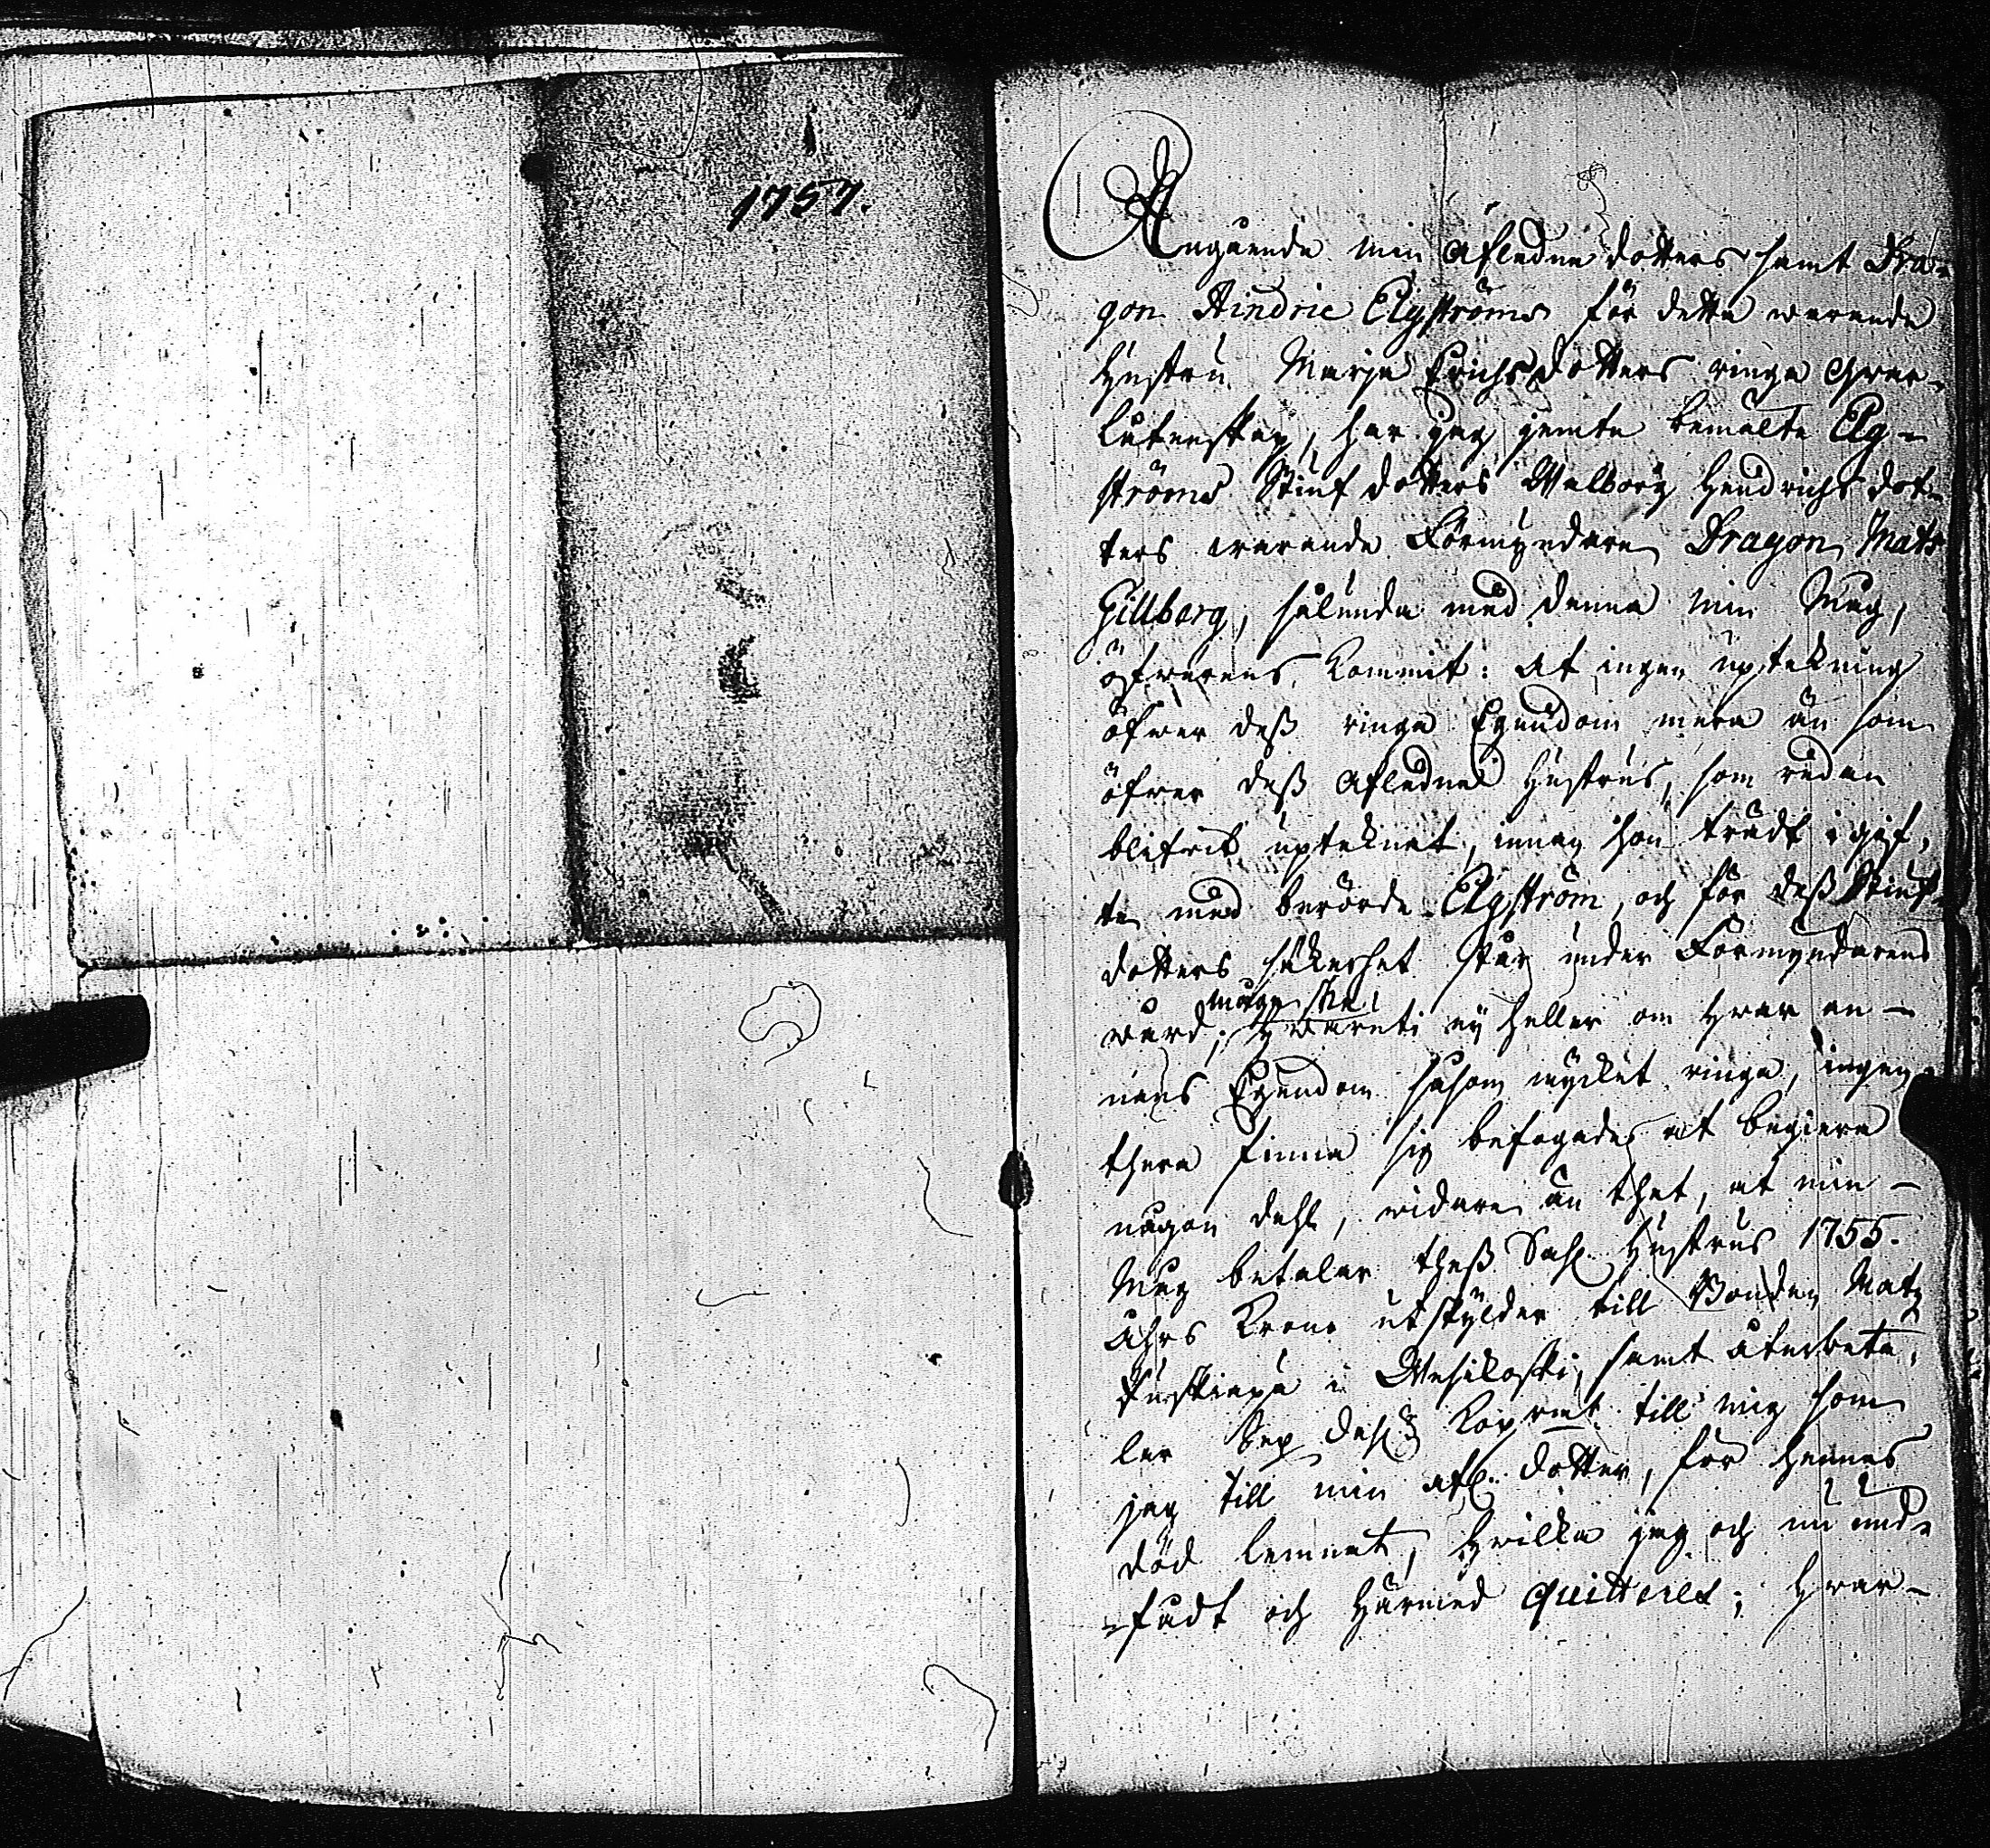 1757.
Angående min Afledne dotters samt Dra-
gon Hindric Elgströms för detta warande
Hustru Marja Erichsdotters ringa Qwar-
låtenskap, har jag jemte bemälte Elg-
ströms Stiuf dotters Walborg Hendrichs dot-
ters warande Förmyndare Dragon Mats
Gillberg, sålunda med denna min Måg,
öfwerens kommit: at ingen uptekning
öfwer deß ringa Egendom mera än som
öfwer deß Afledne Hustrus, som redan
blifwit upteknat, innan hon trädt i gif-
te med berörde Elgström, och för deß Stiuf-
dotters säkerhet står under Förmyndarens
wård;
måge ske,
Hwaruti ey heller om Hwar an-
nans Egendom såsom mycket ringa, ingen-
thera finna sig befogade at begiera
någon dehl, widare än thet, at min
Måg betalar theß Sahl. Hustrus 1755.
åhrs Krono utskylder till Bonden Mats
i Wesikoski, samt återbeta-
lar Sex dahl. Kopr mt till mig som
jag till min afl. dotter, för hennes
död lemnat, Hwilka jag och nu und-
fådt och Härmed quitteres; Hwar-